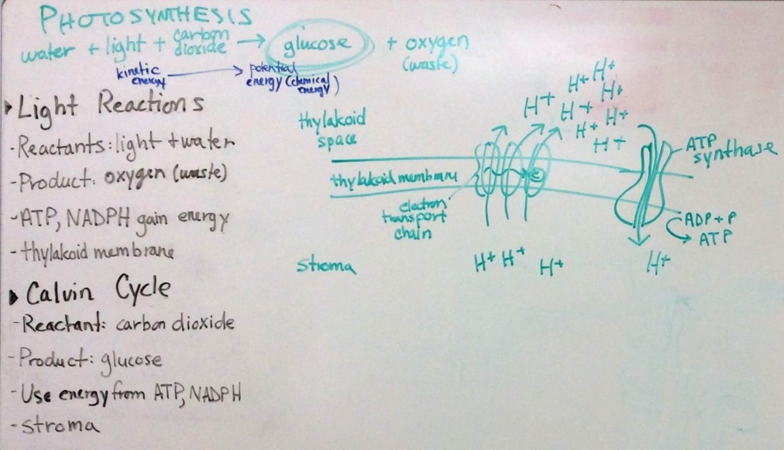 PHOTOSYNTHESIS
water + light + carbon dioxide → glucose + oxygen (waste)
kinetic energy → potential energy (chemical energy)
▸ Light Reactions
- Reactants: light + water
- Product: oxygen (waste)
- ATP, NADPH gain energy
- thylakoid membrane
▸ Calvin Cycle
- Reactant: carbon dioxide
- Product: glucose
- Use energy from ATP, NADPH
- stroma
thylakoid
space
thylakoid membrane
electron
transport
chain
stroma
H+
H+ H+
H+ H+
H+ H+
H+
e
H+ H+ H+
ATP
synthase
ADP + P
ATP
H+